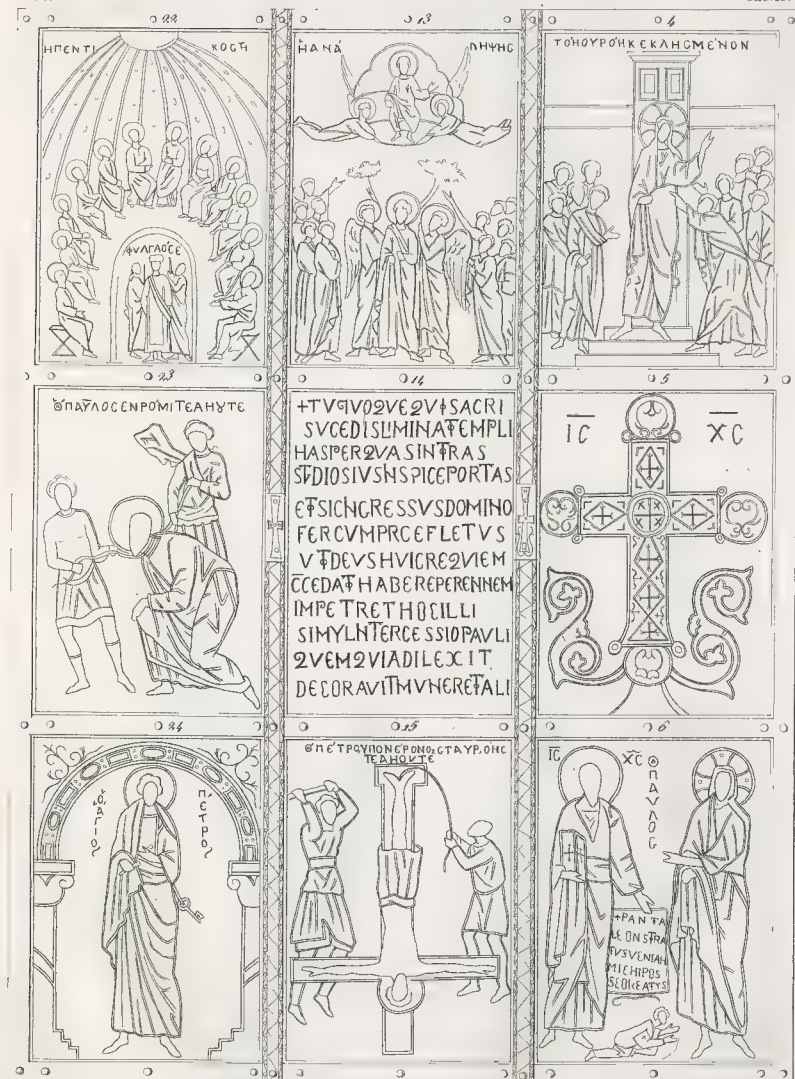 22
ΗΠΕΝΤΙ ΚΟϹΤΗ
ΦΥΛΓΛΟϹΕ
13
ΗΑΝΑ ΛΗΨΗϹ
4
ΤΟΗΟΥΡΟΗΚΕΚΛΗϹΜΕΝΟΝ
23
ὉΠΑΥΛΟϹΕΝΡΟΜΙΤΕΛΗΥΤΕ
14
+TVQVOQVEQVISACRI
SVCEDISLIMINATEMPLI
HASPERQVASINTRAS
STVDIOSIVSINSPICEPORTAS
ETSICINGRESSVSDOMINO
FERCVMPRCEFLETVS
VTDEVSHVICREQVIEM
CCEDATHABEREPERENNEM
IMPETRETHOCILLI
SIMVLINTERCESSIOPAVLI
QVEMQVIADILEXIT
DECORAVITMVNERETALI
5
IC XC
24
Ὁ ΑΓΙΟϹ
ΠΕΤΡΟϹ
15
ΘΠΕΤΡΟΥΠΟΝΕΡΟΝΟϹϹΤΑΥΡΟΗϹ
ΤΕΛΗΟΥΤΕ
6
IC XC
Ὁ ΠΑΥΛΟϹ
+PANTA
LEONSTRA
TVSVENIAM
MICHIPOS
SEOREATVS